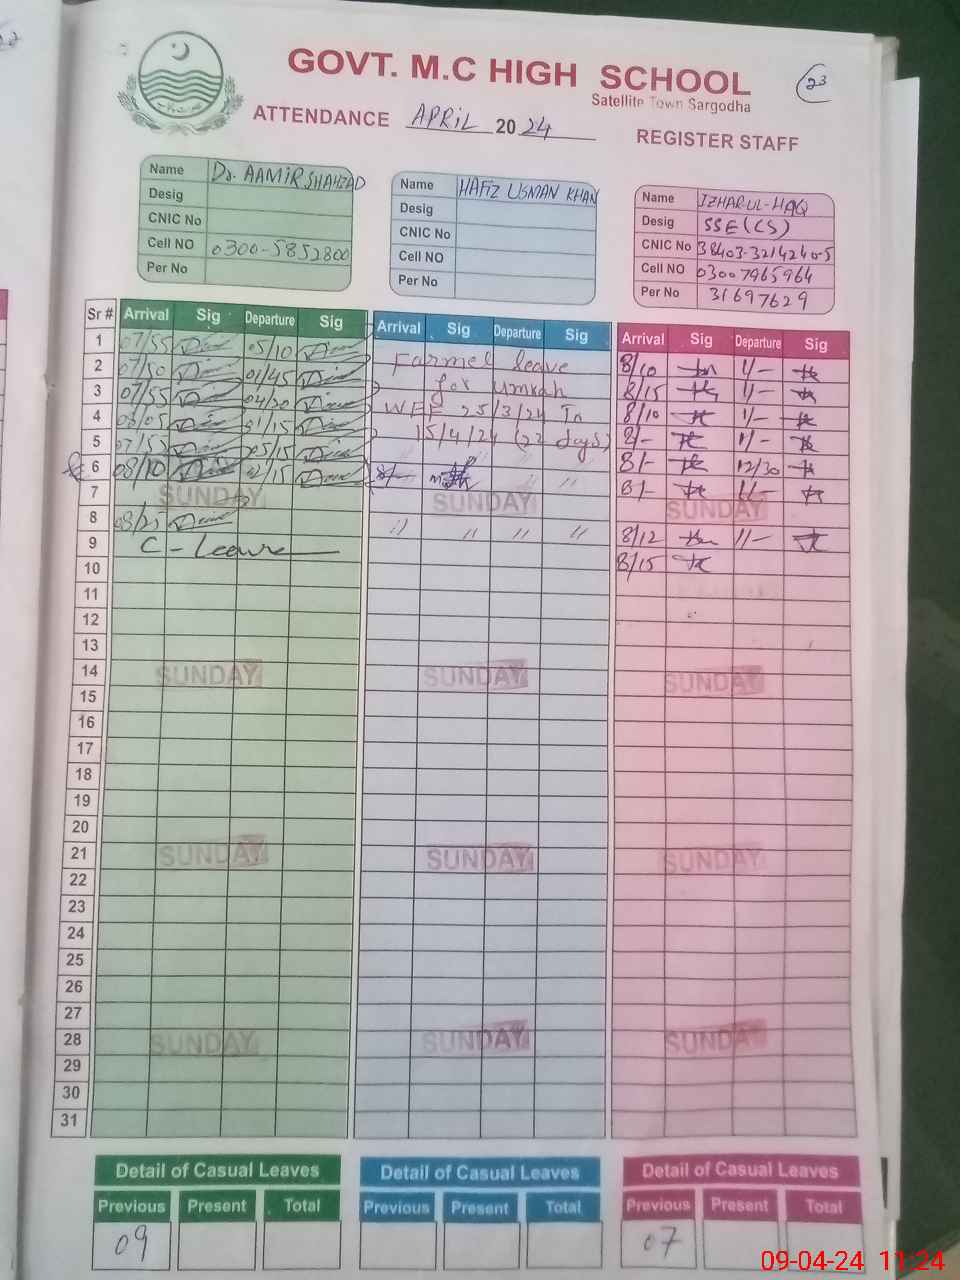 GOVT. M.C HIGH SCHOOL
23
Satellite Town Sargodha
ATTENDANCE APRIL 2024 REGISTER STAFF
Name Dr. AAMIR SHAHZAD
Desig
CNIC No
Cell NO 0300-5852800
Per No
Name HAFIZ USMAN KHAN
Desig
CNIC No
Cell NO
Per No
Name IZHARUL-HAQ
Desig SSE(CS)
CNIC No
Cell NO 03007965964
Per No 31697629
Sr # Arrival Sig Departure Sig Arrival Sig Departure Sig Arrival Sig Departure Sig
1 07/55 05/10 Farmel leave 8/10 1/-
2 07/50 01/45 for Umrah 8/15 1/-
3 07/55 04/20 WEF 25/3/24 To 8/10 1/-
4 08/05 01/15 15/4/24 (22 days) 8/- 1/-
5 07/55 05/15 8/- 12/30
6 08/10 02/15 8/- " " 8/- 1/-
7 SUNDAY SUNDAY SUNDAY
8 " " " " 8/12 11/-
9 C-Leave 8/15
10
11
12
13
14 SUNDAY SUNDAY SUNDAY
15
16
17
18
19
20
21 SUNDAY SUNDAY SUNDAY
22
23
24
25
26
27
28 SUNDAY SUNDAY SUNDAY
29
30
31
Detail of Casual Leaves Detail of Casual Leaves Detail of Casual Leaves
Previous Present Total Previous Present Total Previous Present Total
09 07
09-04-24 11:24